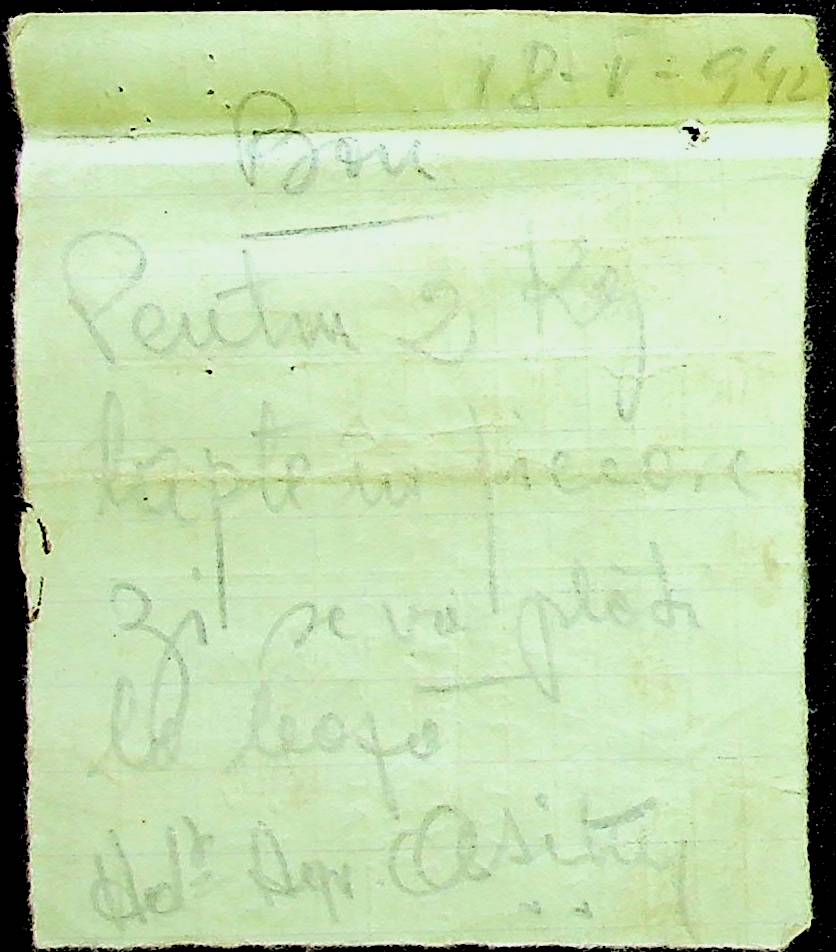 18-V-942
Bon
Pentru 2 Kg
lapte în fiecare
zi se va plăti
la leafă
Agr.